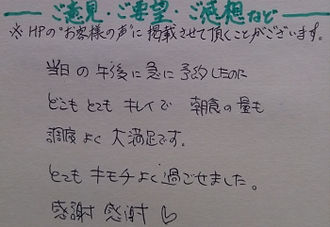 ご意見・ご要望・ご感想など
※HPの"お客様の声"に掲載させて頂くことがございます。
当日の午後に急に予約したのに
どこもとてもキレイで 朝食の量も
調度よく大満足です。
とてもキモチよく過ごせました。
感謝 感謝 ♡